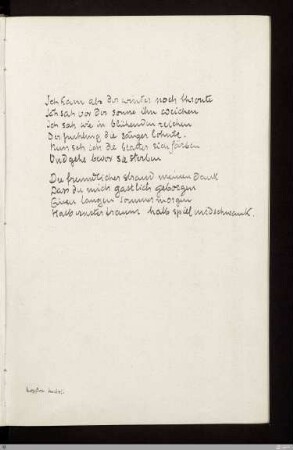 Ich kam als der winter noch thronte
Ich sah vor der sonne ihn weichen
Ich sah wie in blühenden zeichen
Der frühling die sänger lohnte.
Nun seh ich die blätter sich färben
Und gehe bevor sie sterben
Du freundlicher strand meinen dank
Dass du mich gastlich geborgen
Einen langen sommermorgen
Halb ernster traum halb spiel und schwank.